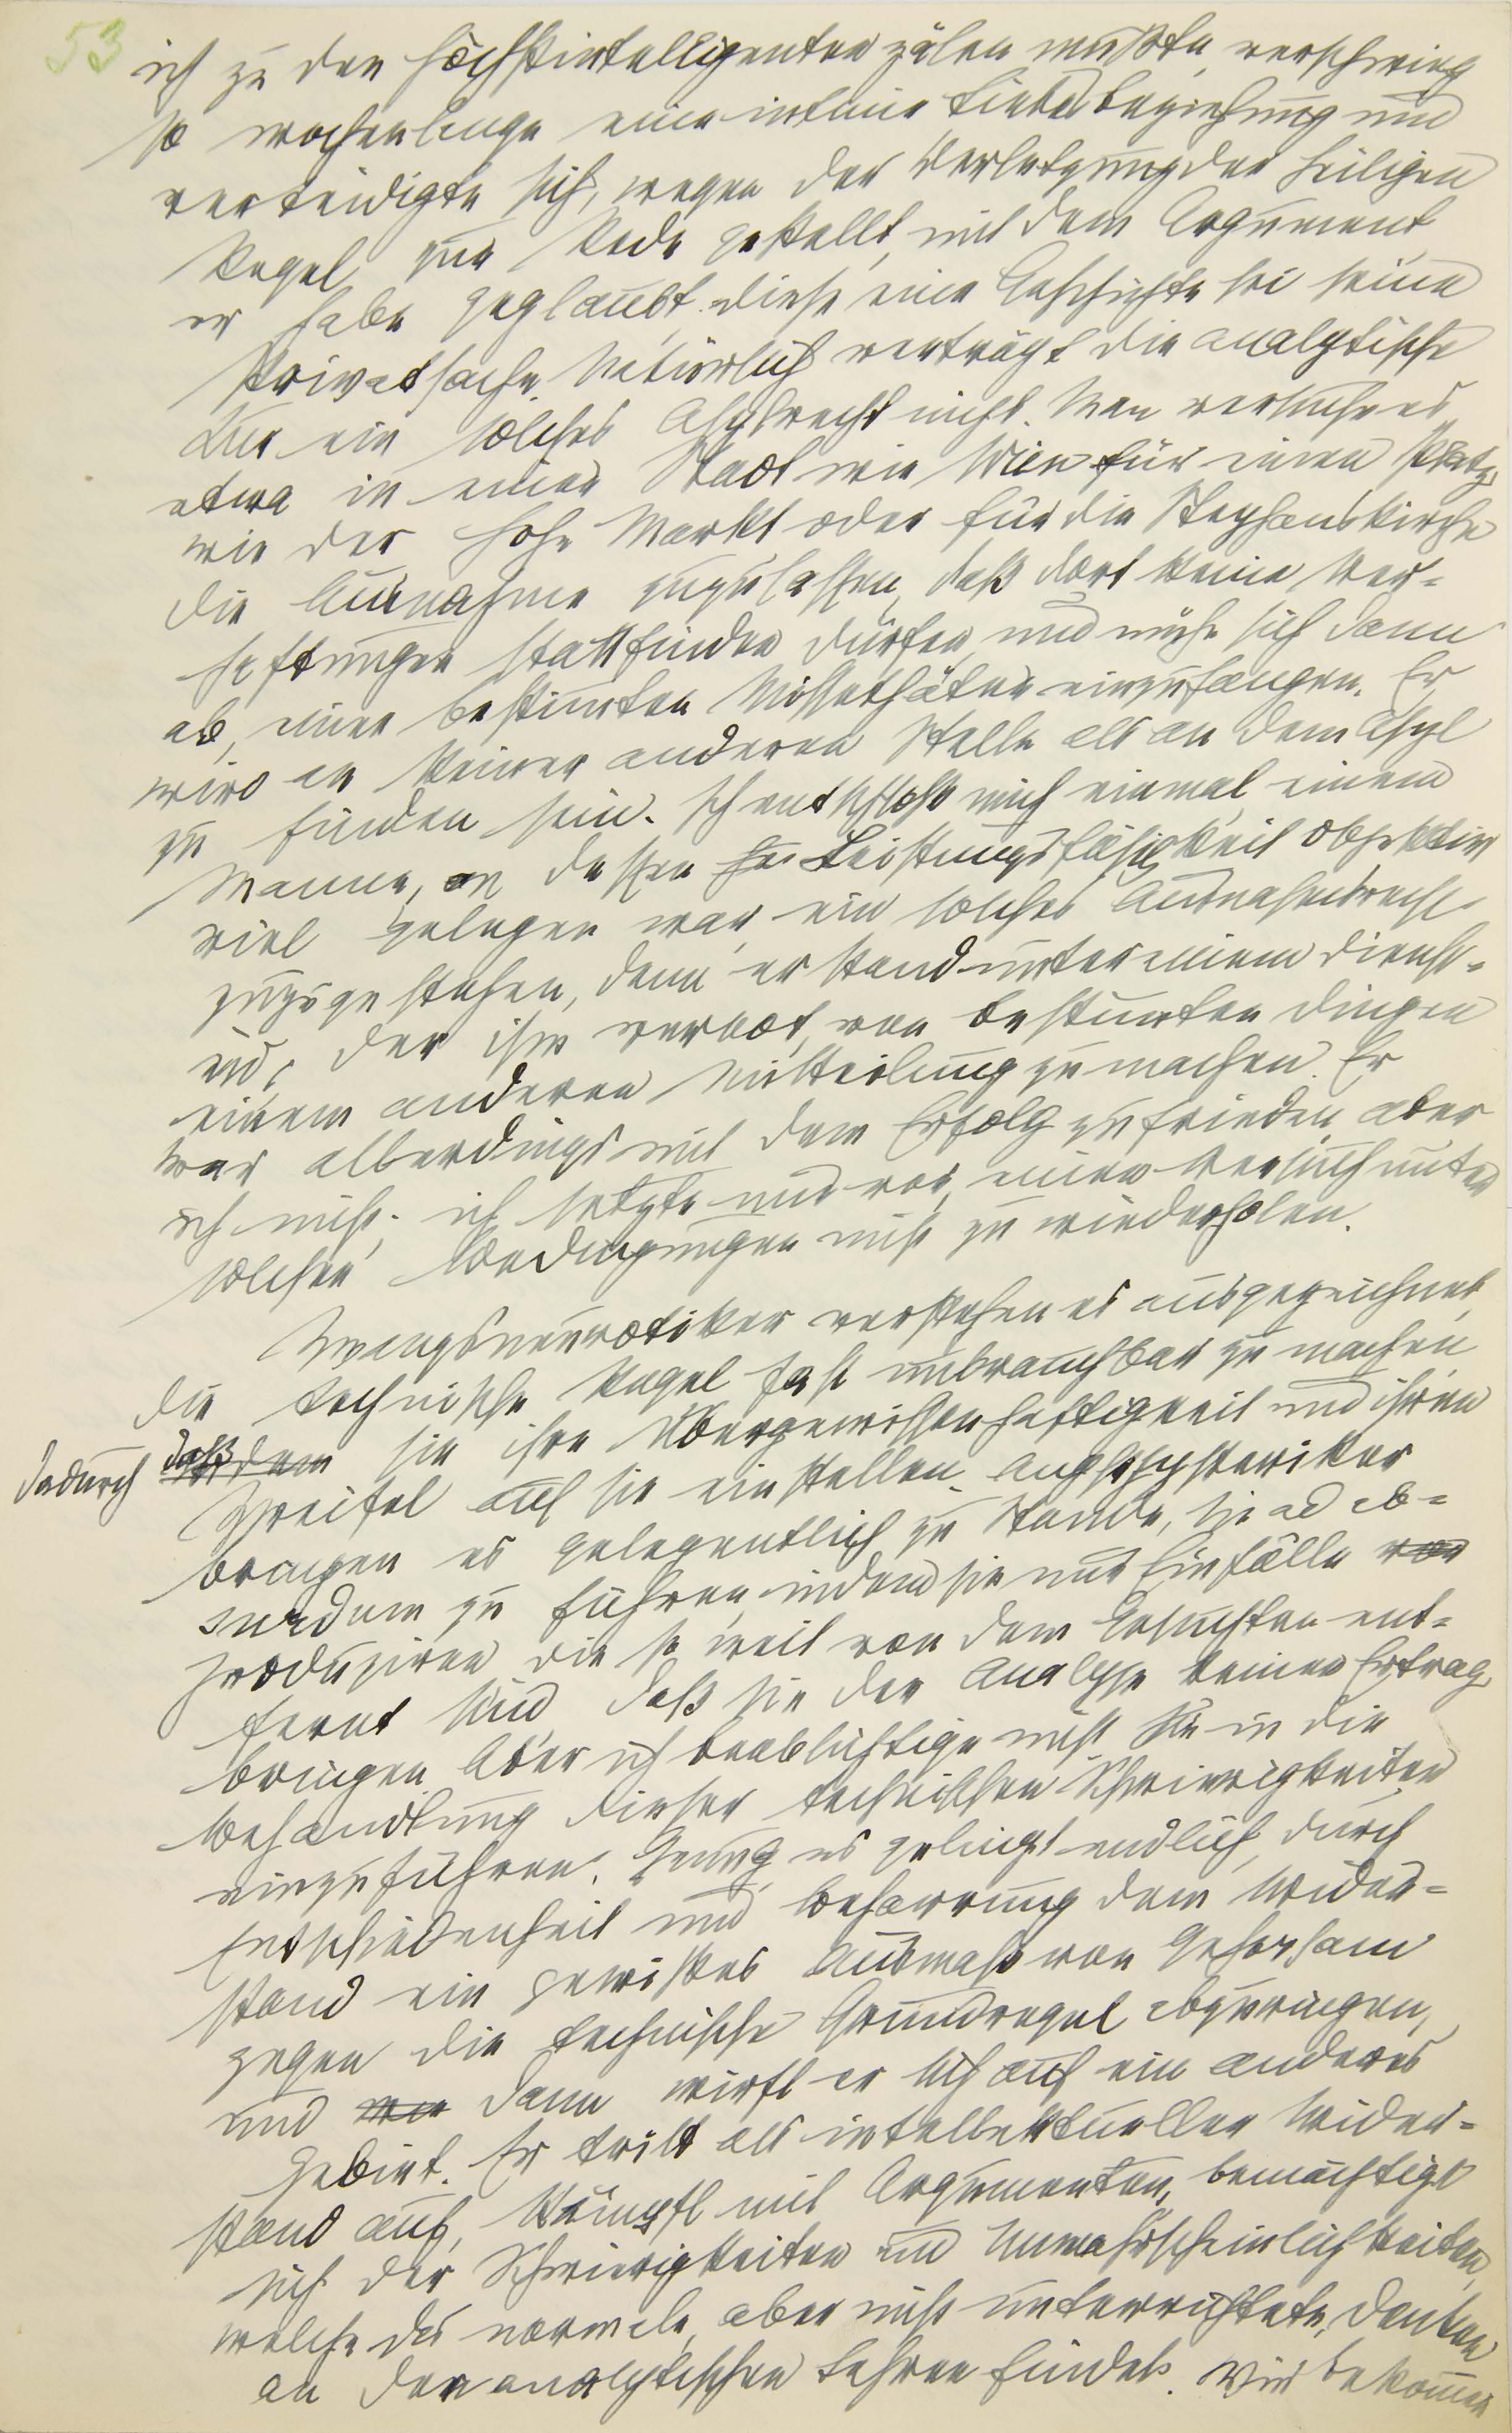 53
ich zu den höchstintelligenten zälen mußte, verschwieg
so wochenlange eine intime Liebesbeziehung und
verteidigte sich, wegen der Verletzung der heiligen
Regel zur Rede gestellt, mit dem Argument
er habe geglaubt diese eine Geschichte sei seine
Privatsache. Natürlich verträgt die analytische
Kur ein solches Asylrecht nicht. Man versuche es
etwa in einer Stadt wie Wien für einen Platz
wie der hohe Markt oder für die Stephanskirche
die Ausnahme zuzulassen, daß dort keine Ver-
haftungen stattfinden dürfen und mühe sich dann
ab, einen bestimten Missethäter einzufangen. Er
wird an keiner anderen Stelle als an dem Asyl
zu finden sein. Ich entschloß mich einmal einem
Manne, an dessen Leistungsfähigkeit objektiv
viel gelegen war, ein solches Ausnahmsrecht
zuzugestehen, denn er stand unter einem Dienst-
eid, der ihm verbot, von bestimten Dingen
einem anderen Mitteilung zu machen. Er
war allerdings mit dem Erfolg zufrieden, aber
ich nicht; ich setzte mir vor, einen Versuch unter
solchen Bedingungen nicht zu wiederholen.
Zwangsneurotiker verstehen es ausgezeichnet,
die technische Regel fast unbrauchbar zu machen
dadurch daß sie ihre Übergewissenhaftigkeit und ihren
Zweifel auf sie einstellen. Angsthysteriker
bringen es gelegentlich zu Stande, sie ad ab-
surdum zu führen, indem sie nur Einfälle von
produziren die so weit von dem Gesuchten ent-
fernt sind daß sie der Analyse keinen Ertrag
bringen. Aber ich beabsichtige nicht Sie in die
Behandlung dieser technischen Schwierigkeiten
einzuführen. Genug, es gelingt endlich, durch
Entschiedenheit und Beharrung dem Wider-
stand ein gewisses Ausmaß von Gehorsam
gegen die technische Grundregel abzuringen,
und dann wirft er sich auf ein anderes
Gebiet. Er tritt als intellektueller Wider-
stand auf, kämpft mit Argumenten, bemächtigt
sich der Schwierigkeiten und Unwahrscheinlichkeiten,
welche das normale, aber nicht unterrichtete, Denken
an den analytischen Lehren findet. Wir bekommen